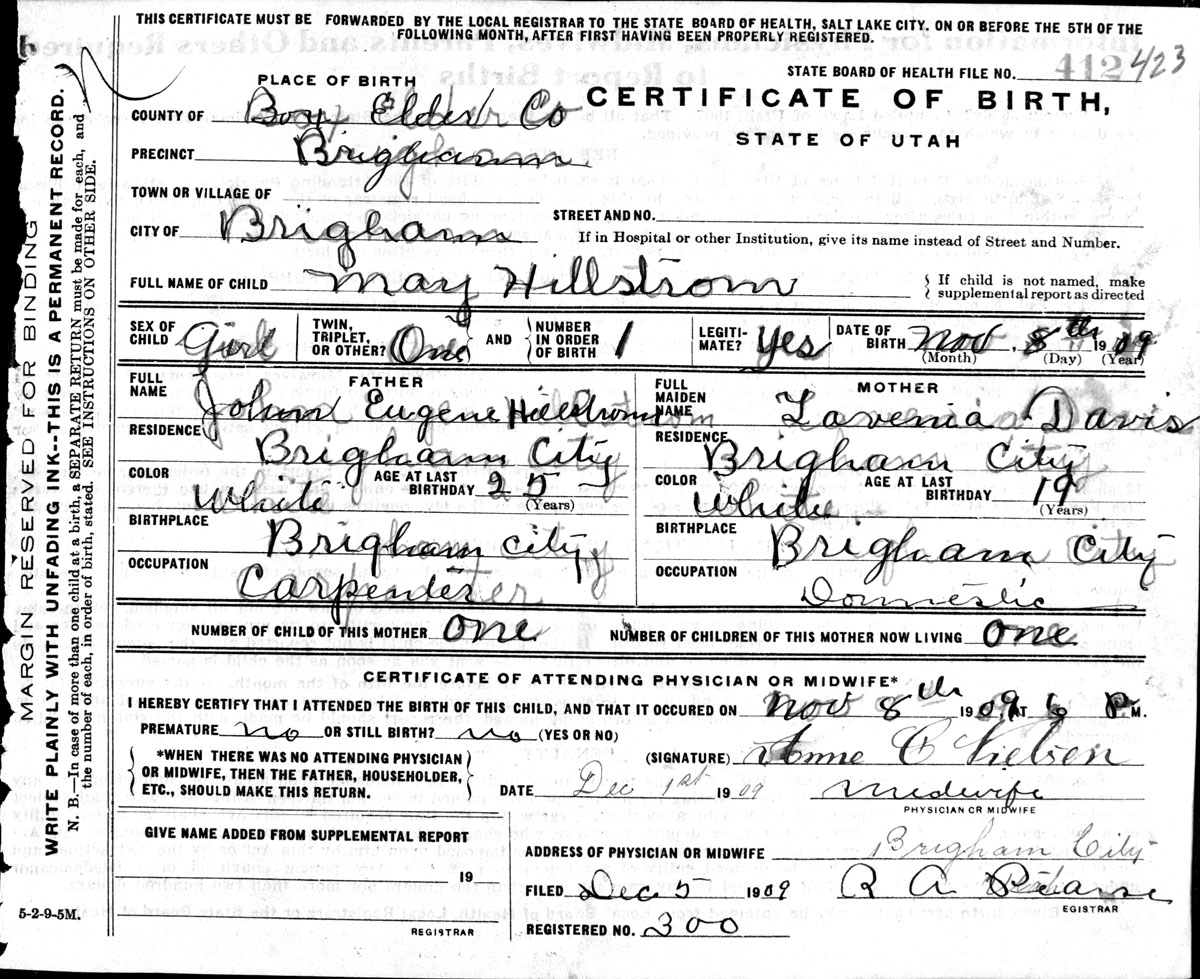 THIS CERTIFICATE MUST BE FORWARDED BY THE LOCAL REGISTRAR TO THE STATE BOARD OF HEALTH, SALT LAKE CITY. ON OR BEFORE THE 5TH OF THE
FOLLOWING MONTH, AFTER FIRST HAVING BEEN PROPERLY REGISTERED.
STATE BOARD OF HEALTH FILE NO. 412 423
PLACE OF BIRTH
CERTIFICATE OF BIRTH,
STATE OF UTAH
COUNTY OF Box Elder Co
PRECINCT Brigham
TOWN OR VILLAGE OF
STREET AND NO.
CITY OF Brigham
If in Hospital or other Institution, give its name instead of Street and Number.
FULL NAME OF CHILD Mary Hillstrom
If child is not named, make
supplemental report as directed
SEX OF CHILD Girl
TWIN, TRIPLET, OR OTHER? One
AND
NUMBER IN ORDER OF BIRTH 1
LEGITIMATE? Yes
DATE OF BIRTH Nov. 8th 1909
(Month) (Day) (Year)
FATHER
FULL NAME John Eugene Hillstrom
RESIDENCE Brigham City
COLOR White
AGE AT LAST BIRTHDAY 25
(Years)
BIRTHPLACE Brigham City
OCCUPATION Carpenter
MOTHER
FULL MAIDEN NAME Lavenia Davis
RESIDENCE Brigham City
COLOR White
AGE AT LAST BIRTHDAY 19
(Years)
BIRTHPLACE Brigham City
OCCUPATION Domestic
NUMBER OF CHILD OF THIS MOTHER One
NUMBER OF CHILDREN OF THIS MOTHER NOW LIVING One
CERTIFICATE OF ATTENDING PHYSICIAN OR MIDWIFE*
I HEREBY CERTIFY THAT I ATTENDED THE BIRTH OF THIS CHILD, AND THAT IT OCCURED ON Nov 8th 1909, AT 6 P M.
PREMATURE no OR STILL BIRTH? no (YES OR NO)
*WHEN THERE WAS NO ATTENDING PHYSICIAN
OR MIDWIFE, THEN THE FATHER, HOUSEHOLDER,
ETC., SHOULD MAKE THIS RETURN.
(SIGNATURE) Anne C Nielsen
DATE Dec 1st 1909 Midwife
PHYSICIAN OR MIDWIFE
GIVE NAME ADDED FROM SUPPLEMENTAL REPORT
19
REGISTRAR
ADDRESS OF PHYSICIAN OR MIDWIFE Brigham City
FILED Dec 5 1909 R A
EGISTRAR
REGISTERED NO. 300
5-2-9-5M.
MARGIN RESERVED FOR BINDING
WRITE PLAINLY WITH UNFADING INK--THIS IS A PERMANENT RECORD.
N. B.—In case of more than one child at a birth, a SEPARATE RETURN must be made for each, and
the number of each, in order of birth, stated. SEE INSTRUCTIONS ON OTHER SIDE.